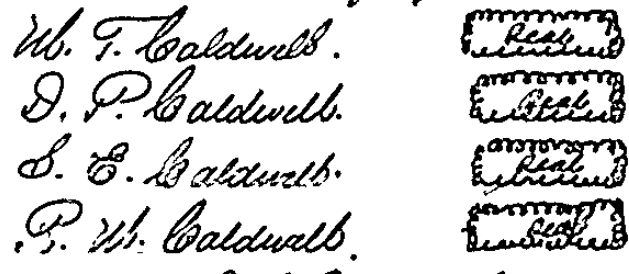 W. T. Caldwell. Seal
D. P. Caldwell. Seal
S. E. Caldwell. Seal
P. W. Caldwell. Seal